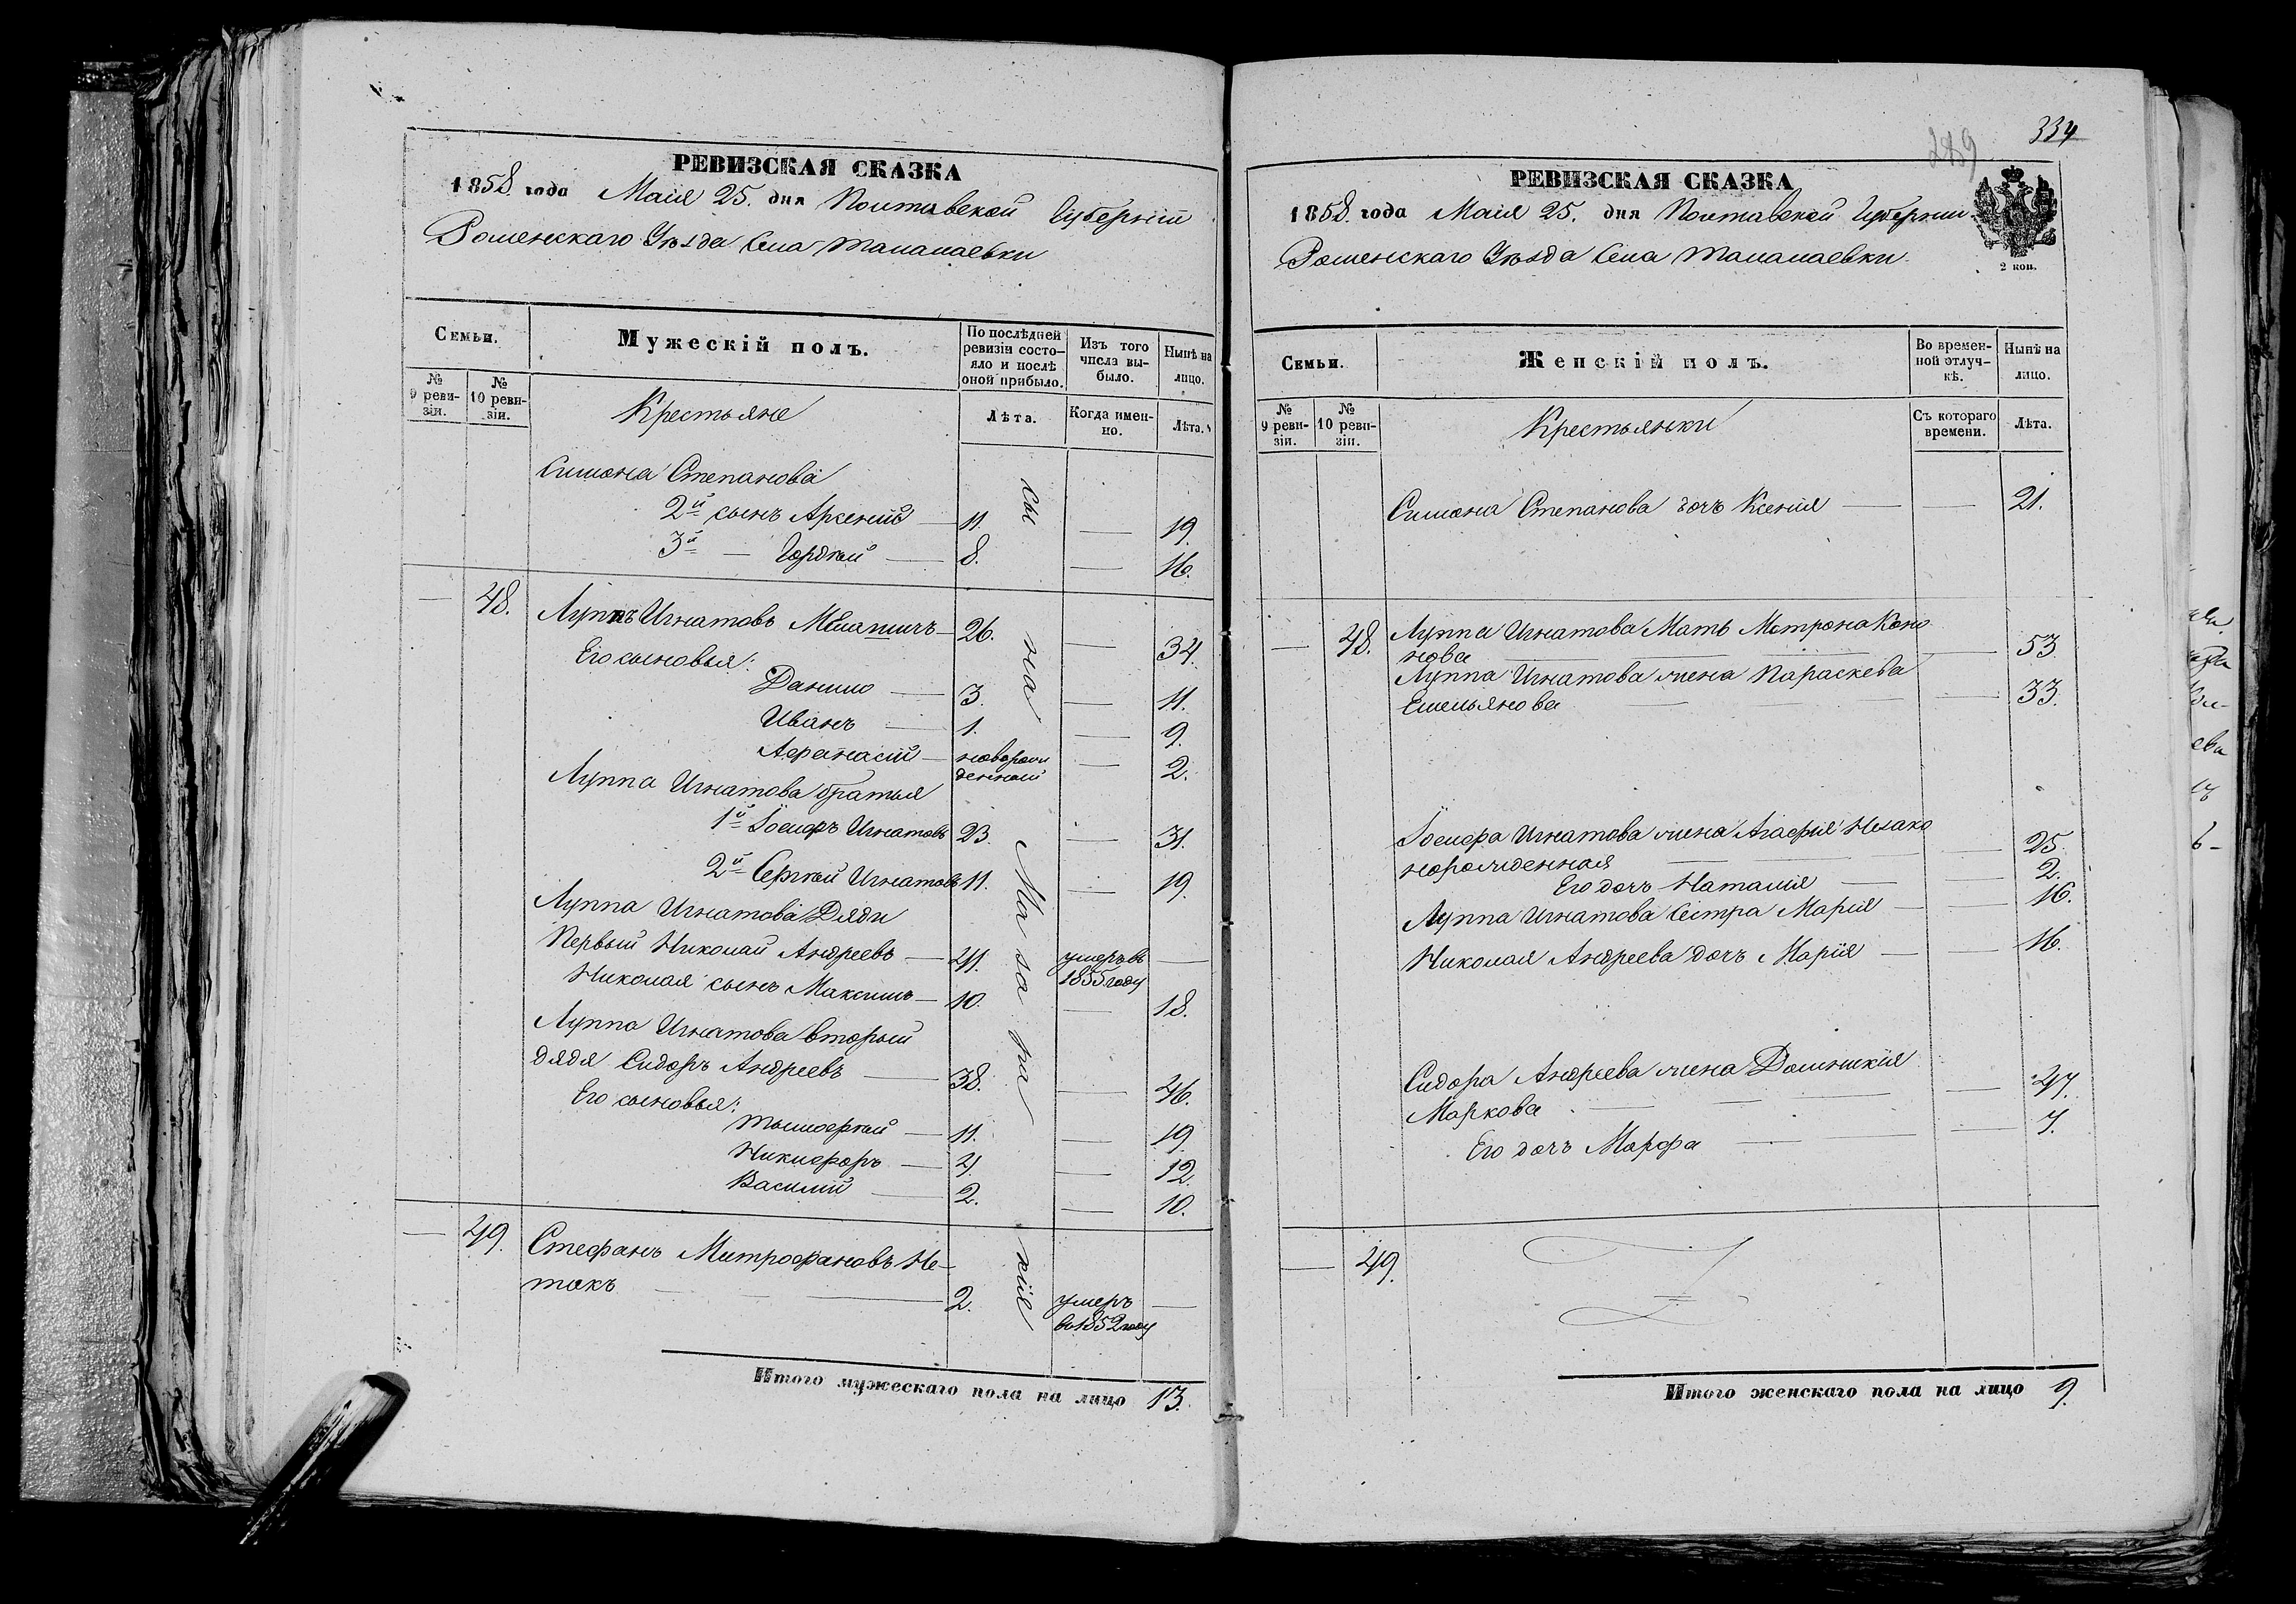 РЕВИЗСКАЯ СКАЗКА
1858. года Маія 25. дня Полтавской Губерніи
Роменскаго Уѣзда Села Талалаевки
Семьи.
Мужескій полъ.
По послѣдней ревизіи состо-
яло и послѣ
оной прибыло.
Изъ того
числа вы-
было.
Нынѣ на
лицо.
№
9 реви-
зіи.
№
10 реви-
зіи.
Крестьяне
Лѣта.
Когда имен-
но.
Лѣта.
Симона Степанова
2й сынъ Арсеній 11. — 19.
3й — Гордѣй — 8. — 16.
— 48. Луппъ Игнатовъ 26. — 34.
Его сыновья:
Данило — 3. — 11.
Иванъ — 1. — 9.
Афанасій — новорож
денный — 2.
Луппа Игнатова братья
1й Іосифъ Игнатовъ 23. — 31.
2й Сергѣй Игнатовъ 11. — 19.
Луппа Игнатова Дяди
Первый Николай Андреевъ — 41. умеръ въ —
1855 году
Николая сынъ Максимъ — 10. — 18.
Луппа Игнатова вторый
дядя Сидоръ Андреевъ — 38. — 46.
Его сыновья:
Тымофѣй — 11. — 19.
Никифоръ — 4. — 12.
Василій — 2. — 10.
— 49. Стефанъ Митрофановъ Не-
токъ — 2. умеръ —
въ 1852 году
Итого мужескаго пола на лицо 13.
334
289
РЕВИЗСКАЯ СКАЗКА
1858. года Маія 25. дня Полтавской Губерніи
Роменскаго Уѣзда Села Талалаевки
2 коп.
Семьи.
Женскій полъ.
Во времен-
ной отлуч-
кѣ.
Нынѣ на
лицо.
№
9 реви-
зіи.
№
10 реви-
зіи.
Крестьянки
Съ котораго
времени.
Лѣта.
Симона Степанова дочъ Ксенія — — 21.
— 48. Луппа Игнатова Мать Матрона Коно
нова — — 53.
Луппа Игнатова жена Параскева
Емельянова — — 33.
Іосифа Игнатова жена Агафія Незако
норожденная — — 25.
Его дочъ Наталія — — 2.
Луппа Игнатова Сестра Марія — — 16.
Николая Андреева дочъ Марія — — 16.
Сидора Андреева жена Домникія
Маркова — — 47.
Его дочъ Марфа — — 7.
— 49.
Итого женскаго пола на лицо 9.